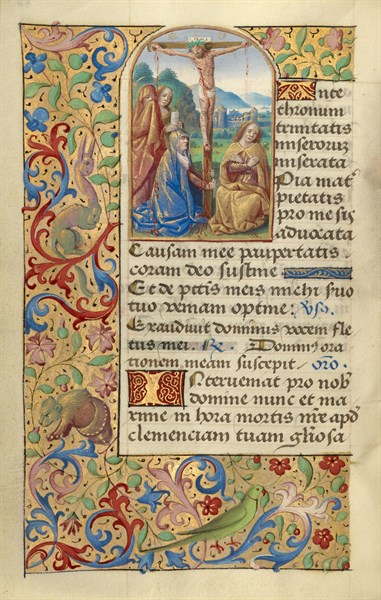 Ante
thronum
trinitatis
miseroruz
miserata
Pia mat'
pietatis
pro me sis
advocata
Causam mee paupertatis
coram deo sustine
Et de pctis meis michi fuo
tuo veniam optine: Vs.
Exaudivit dominus vocem fle
tus mei. R. Dominus ora
tionem meam suscepit oro
Interveniat pro nob'
domine nunc et ma
xime in hora mortis nre apd
clemenciam tuam gliosa